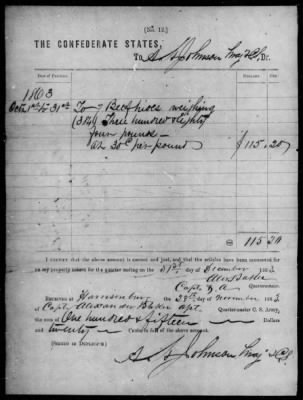 [No. 12.]
THE CONFEDERATE STATES,
To A S Johnson Maj & CS, Dr.
Date of Purchase.
DOLLARS.
CTS.
1863
Octr 1st to 31st To 7 Beef hides weighing
(384) Three hundred & eighty
four pounds —
at 30c per pound
$115.20
115 20
I CERTIFY that the above account is correct and just, and that the articles have been accounted for
on my property return for the quarter ending on the 31st day of December 1863
Capt
Quartermaster.
RECEIVED at Harrisonburg 28th of November 1863,
of Capt Alexander Quartermaster C. S. Army,
the sum of One hundred & fifteen Dollars
and twenty Cents in full of the above account.
(SIGNED IN DUPLICATE.)
A S Johnson Maj & CS